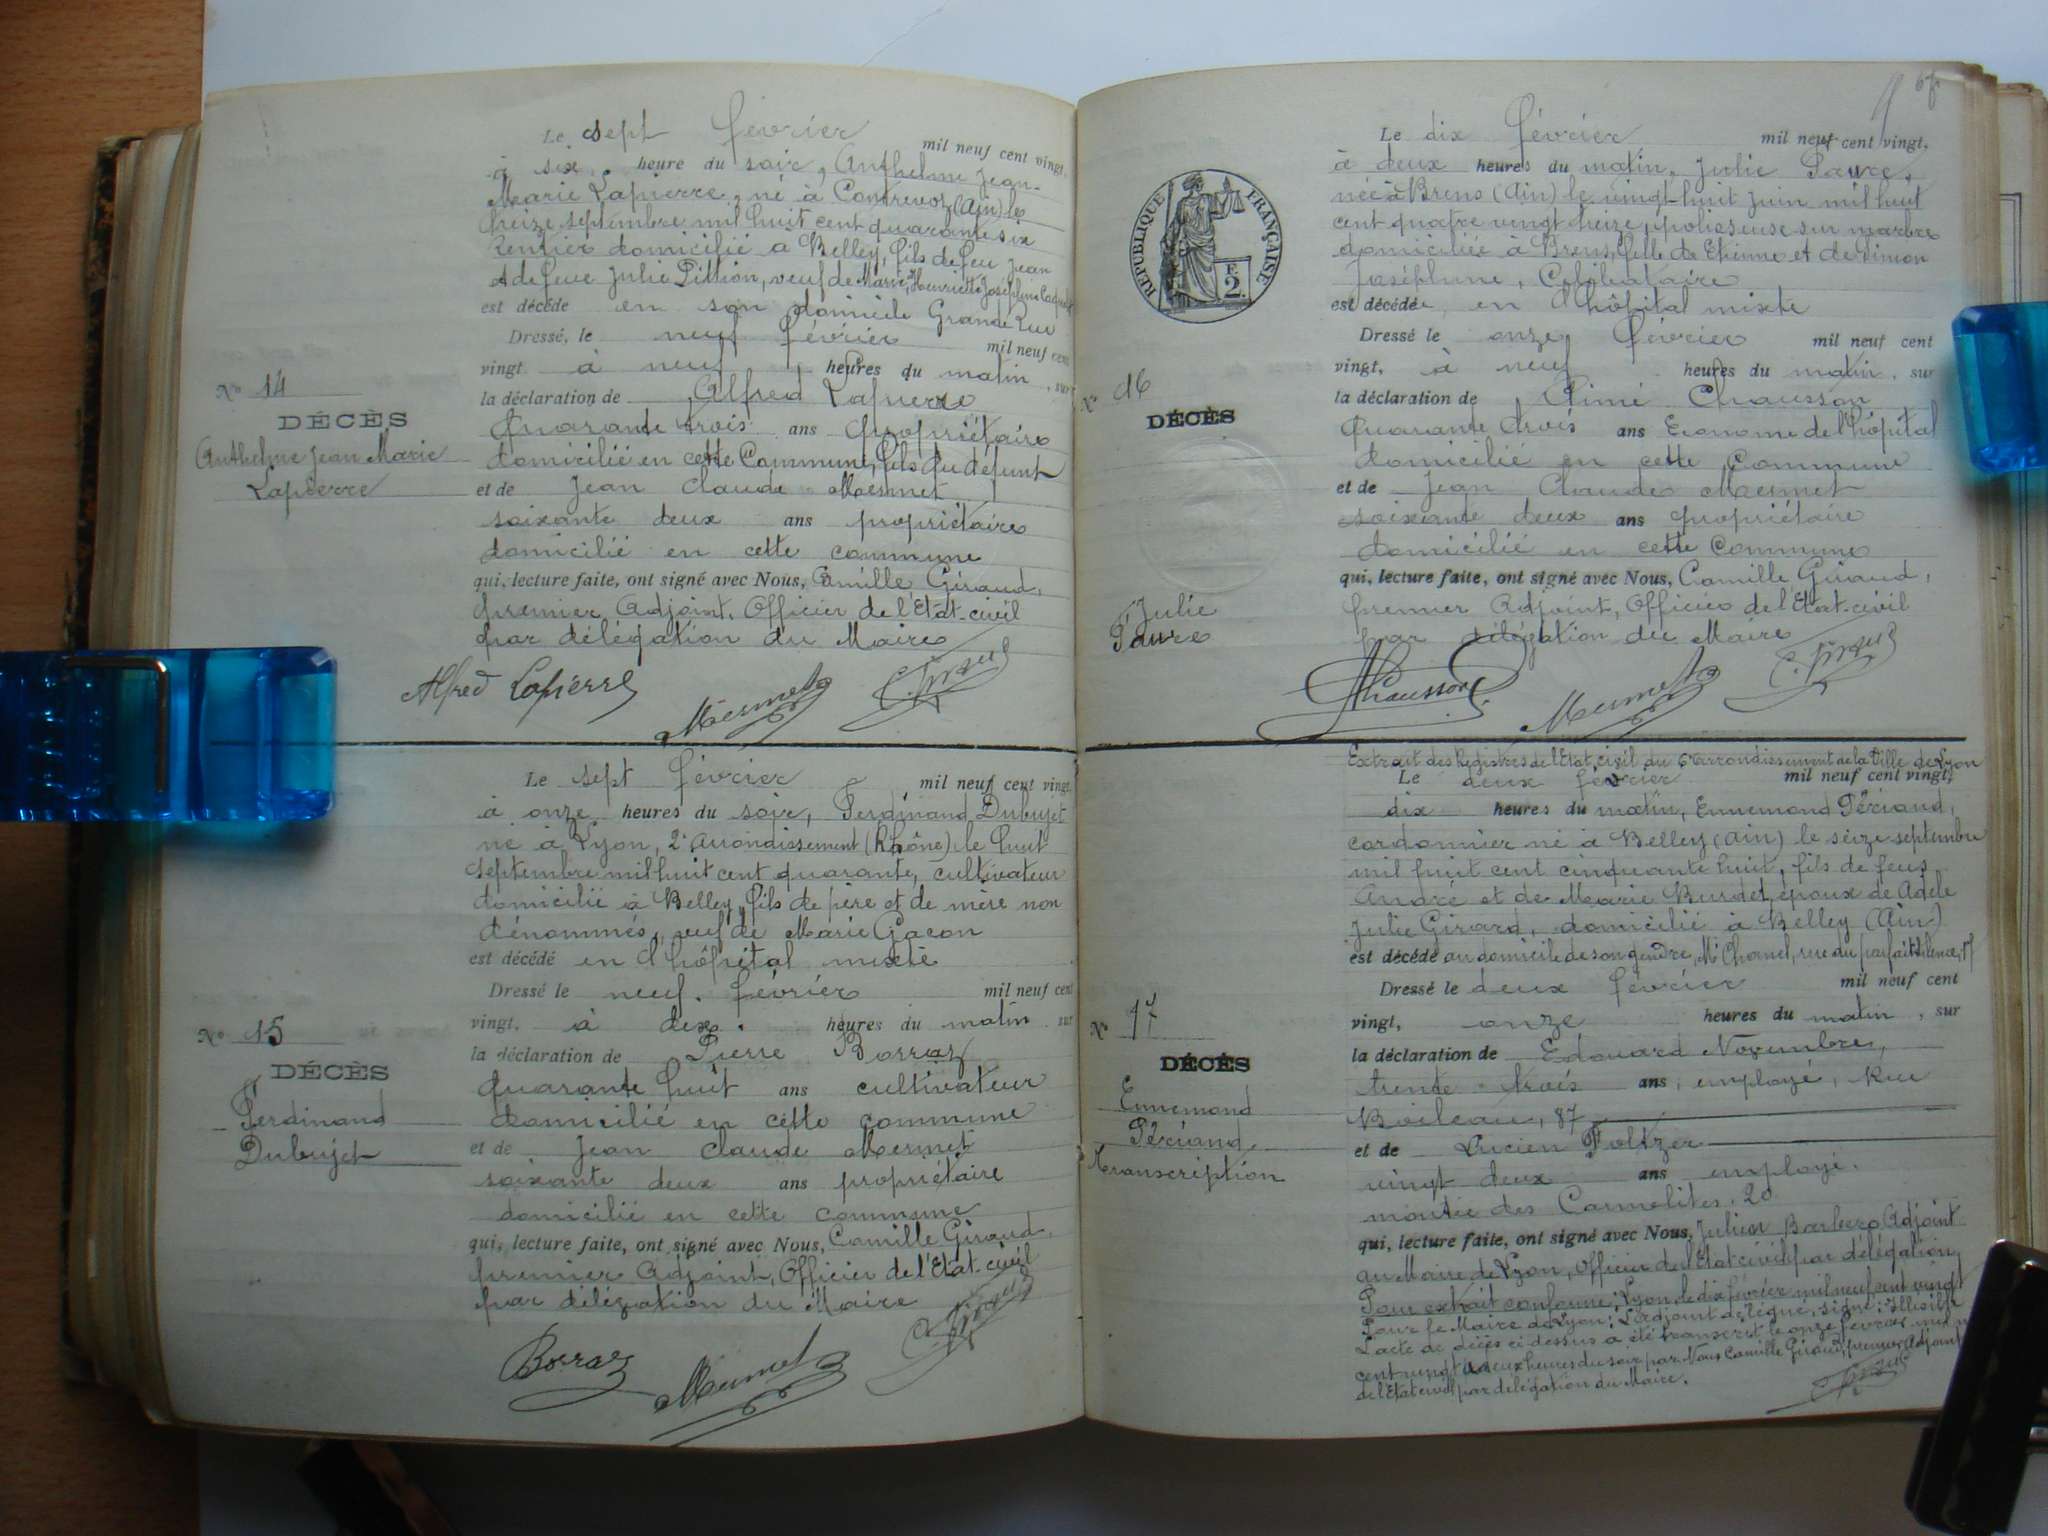 Le sept février mil neuf cent vingt,
à six heure du soir, Anthelme Jean-
Marie Lapierre, né à Contrevoz (Ain) le
treize septembre mil huit cent quarante six
rentier domicilié à Belley, fils de feu Jean
et de feue Julie Pillion, veuf de Marie, Henriette Joséphine
est décédé en son domicile Grande Rue
Dressé, le neuf février mil neuf cent
vingt à neuf heures du matin, sur
la déclaration de Alfred Lapierre
Quarante trois ans propriétaire
domicilié en cette Commune, fils du défunt
et de Jean Claude Mermet
soixante deux ans propriétaire
domicilié en cette commune
qui, lecture faite, ont signé avec Nous, Camille Giraud,
premier Adjoint, Officier de l'Etat-civil
par délégation du Maire
Nº 14
DÉCÈS
Anthelme Jean Marie
Lapierre
Alfred Lapierre Mermet C. Giraud
Le sept février mil neuf cent vingt,
à onze heures du soir, Ferdinand Dubujet
né à Lyon, 2e arrondissement (Rhône) le huit
septembre mil huit cent quarante, cultivateur
domicilié à Belley, fils de père et de mère non
dénommés, veuf de Marie Gacon
est décédé en l'hôpital mixte
Dressé le neuf février mil neuf cent
vingt, à dix heures du matin, sur
la déclaration de Pierre Borraz
Quarante huit ans cultivateur
domicilié en cette commune
et de Jean Claude Mermet
soixante deux ans propriétaire
domicilié en cette commune
qui, lecture faite, ont signé avec Nous, Camille Giraud,
premier Adjoint, Officier de l'Etat-civil
par délégation du Maire
Nº 15
DÉCÈS
Ferdinand
Dubujet
Borraz Mermet C. Giraud
67
RÉPUBLIQUE FRANÇAISE
F.
2.
Le dix février mil neuf cent vingt,
à deux heures du matin, Julie Faure,
née à Brens (Ain) le vingt-huit Juin mil huit
cent quatre vingt treize, polisseuse sur marbre
domiciliée à Brens, fille de Etienne et de Simon
Joséphine, Célibataire
est décédée en l'hôpital mixte
Dressé le onze février mil neuf cent
vingt, à neuf heures du matin, sur
la déclaration de Aimé Chausson
Quarante trois ans Econome de l'hôpital
domicilié en cette Commune
et de Jean Claude Mermet
soixante deux ans propriétaire
domicilié en cette Commune
qui, lecture faite, ont signé avec Nous, Camille Giraud,
premier Adjoint, Officier de l'Etat-civil
par délégation du Maire
Nº 16
DÉCÈS
Julie
Faure
Chausson Mermet C. Giraud
Extrait des Registres de l'Etat civil du arrondissement de la Ville de Lyon
Le deux février mil neuf cent vingt,
dix heures du matin, Ennemond Périand,
cordonnier né à Belley (Ain) le seize septembre
mil huit cent cinquante huit, fils de feus
André et de Marie Burdet, époux de Adèle
Julie Girard, domicilié à Belley (Ain)
est décédé au domicile de son gendre, Mr Chanel, rue du parfait silence, 17
Dressé le deux février mil neuf cent
vingt, onze heures du matin, sur
la déclaration de Edouard Novembre,
trente trois ans, employé, Rue
Boileau, 87
et de Lucien Foltzer
vingt deux ans employé,
montée des Carmélites, 20
qui, lecture faite, ont signé avec Nous, Julien Barbero Adjoint
au Maire de Lyon, Officier de l'Etat civil par délégation
Pour extrait conforme; Lyon, le dix février mil neuf cent vingt
Pour le Maire de Lyon; L'adjoint délégué, signé: illisible
L'acte de décès ci-dessus a été transcrit le onze février mil neuf
cent vingt à deux heures du soir par Nous Camille Giraud, premier Adjoint
de l'Etat civil par délégation du Maire.
Nº 17
DÉCÈS
Ennemond
Périand
Transcription
C. Giraud